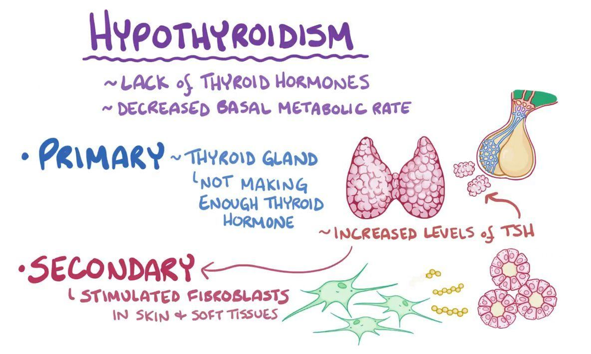 HYPOTHYROIDISM
~ LACK of THYROID HORMONES
~ DECREASED BASAL METABOLIC RATE
• PRIMARY ~ THYROID GLAND
NOT MAKING
ENOUGH THYROID
HORMONE
~ INCREASED LEVELS of TSH
• SECONDARY
STIMULATED FIBROBLASTS
IN SKIN & SOFT TISSUES